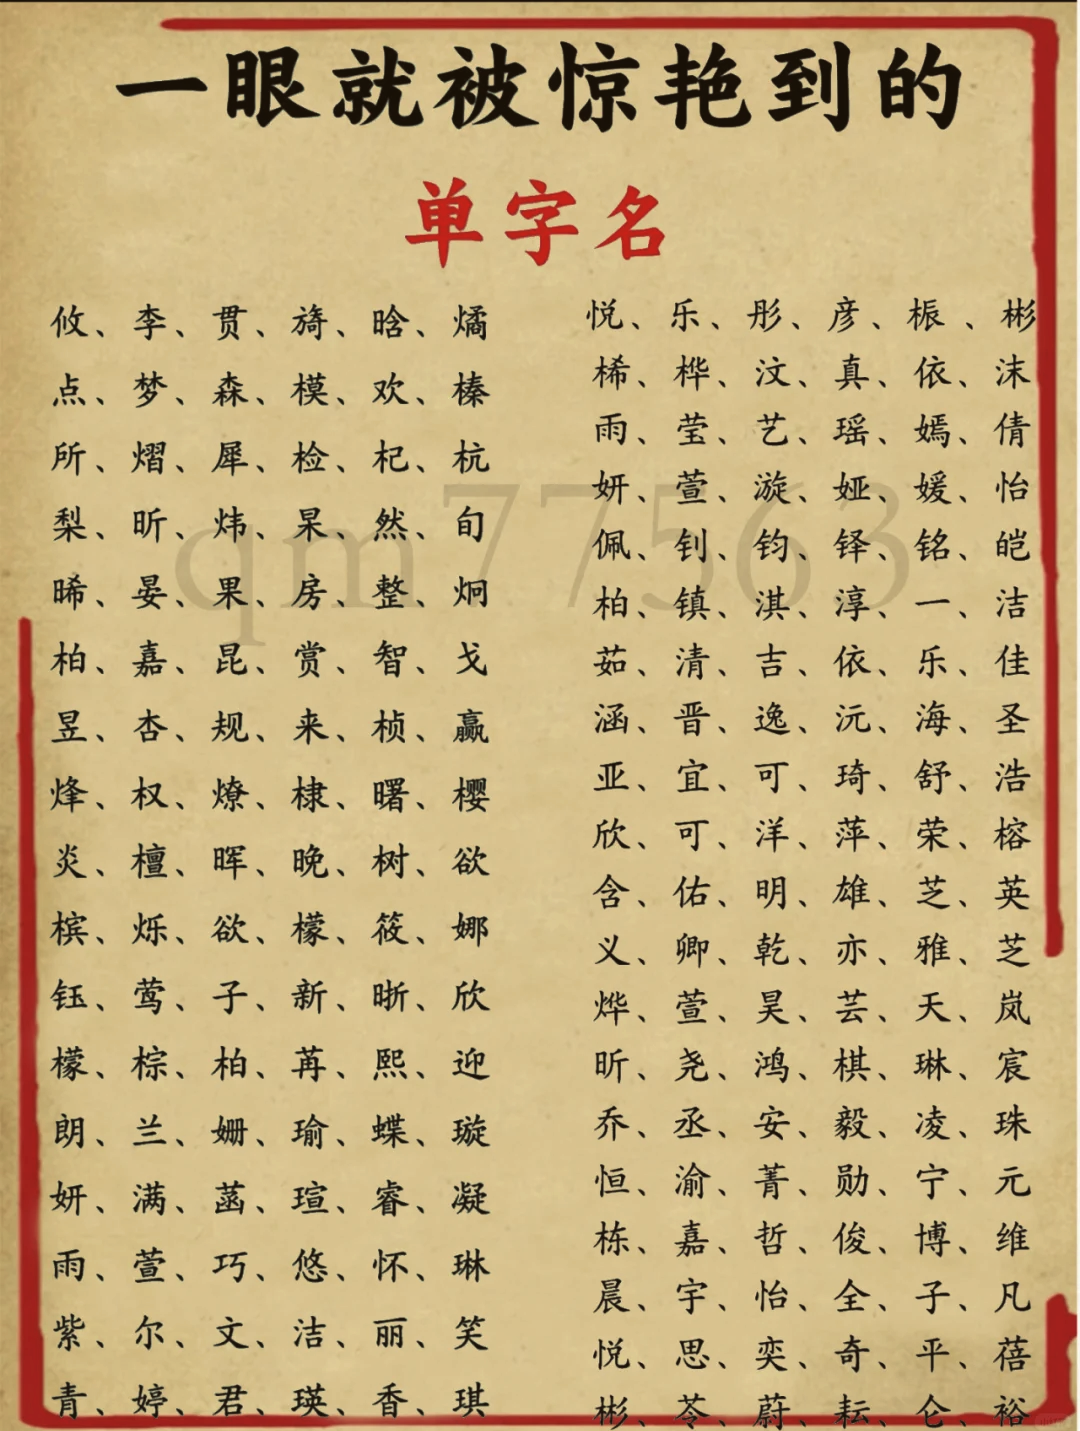 一眼就被惊艳到的
单字名
攸、李、贯、旖、晗、燏
点、梦、森、模、欢、榛
所、熠、犀、检、杞、杭
梨、昕、炜、杲、然、旬
晞、晏、果、房、整、炯
柏、嘉、昆、赏、智、戈
昱、杏、规、来、桢、赢
烽、权、燎、棣、曙、樱
炎、檀、晖、晚、树、欲
槟、烁、欲、檬、筱、娜
钰、莺、子、新、晣、欣
檬、棕、柏、苒、熙、迎
朗、兰、姗、瑜、蝶、璇
妍、满、菡、瑄、睿、凝
雨、萱、巧、悠、怀、琳
紫、尔、文、洁、丽、笑
青、婷、君、瑛、香、琪
悦、乐、彤、彦、桭、彬
桸、桦、汶、真、依、沫
雨、莹、艺、瑶、嫣、倩
妍、萱、漩、娅、媛、怡
佩、钊、钧、铎、铭、皑
柏、镇、淇、淳、一、洁
茹、清、吉、依、乐、佳
涵、晋、逸、沅、海、圣
亚、宜、可、琦、舒、浩
欣、可、洋、萍、荣、榕
含、佑、明、雄、芝、英
义、卿、乾、亦、雅、芝
烨、萱、昊、芸、天、岚
昕、尧、鸿、棋、琳、宸
乔、丞、安、毅、凌、珠
恒、渝、菁、勋、宁、元
栋、嘉、哲、俊、博、维
晨、宇、怡、全、子、凡
悦、思、奕、奇、平、蓓
彬、苓、蔚、耘、仑、裕
qm77563